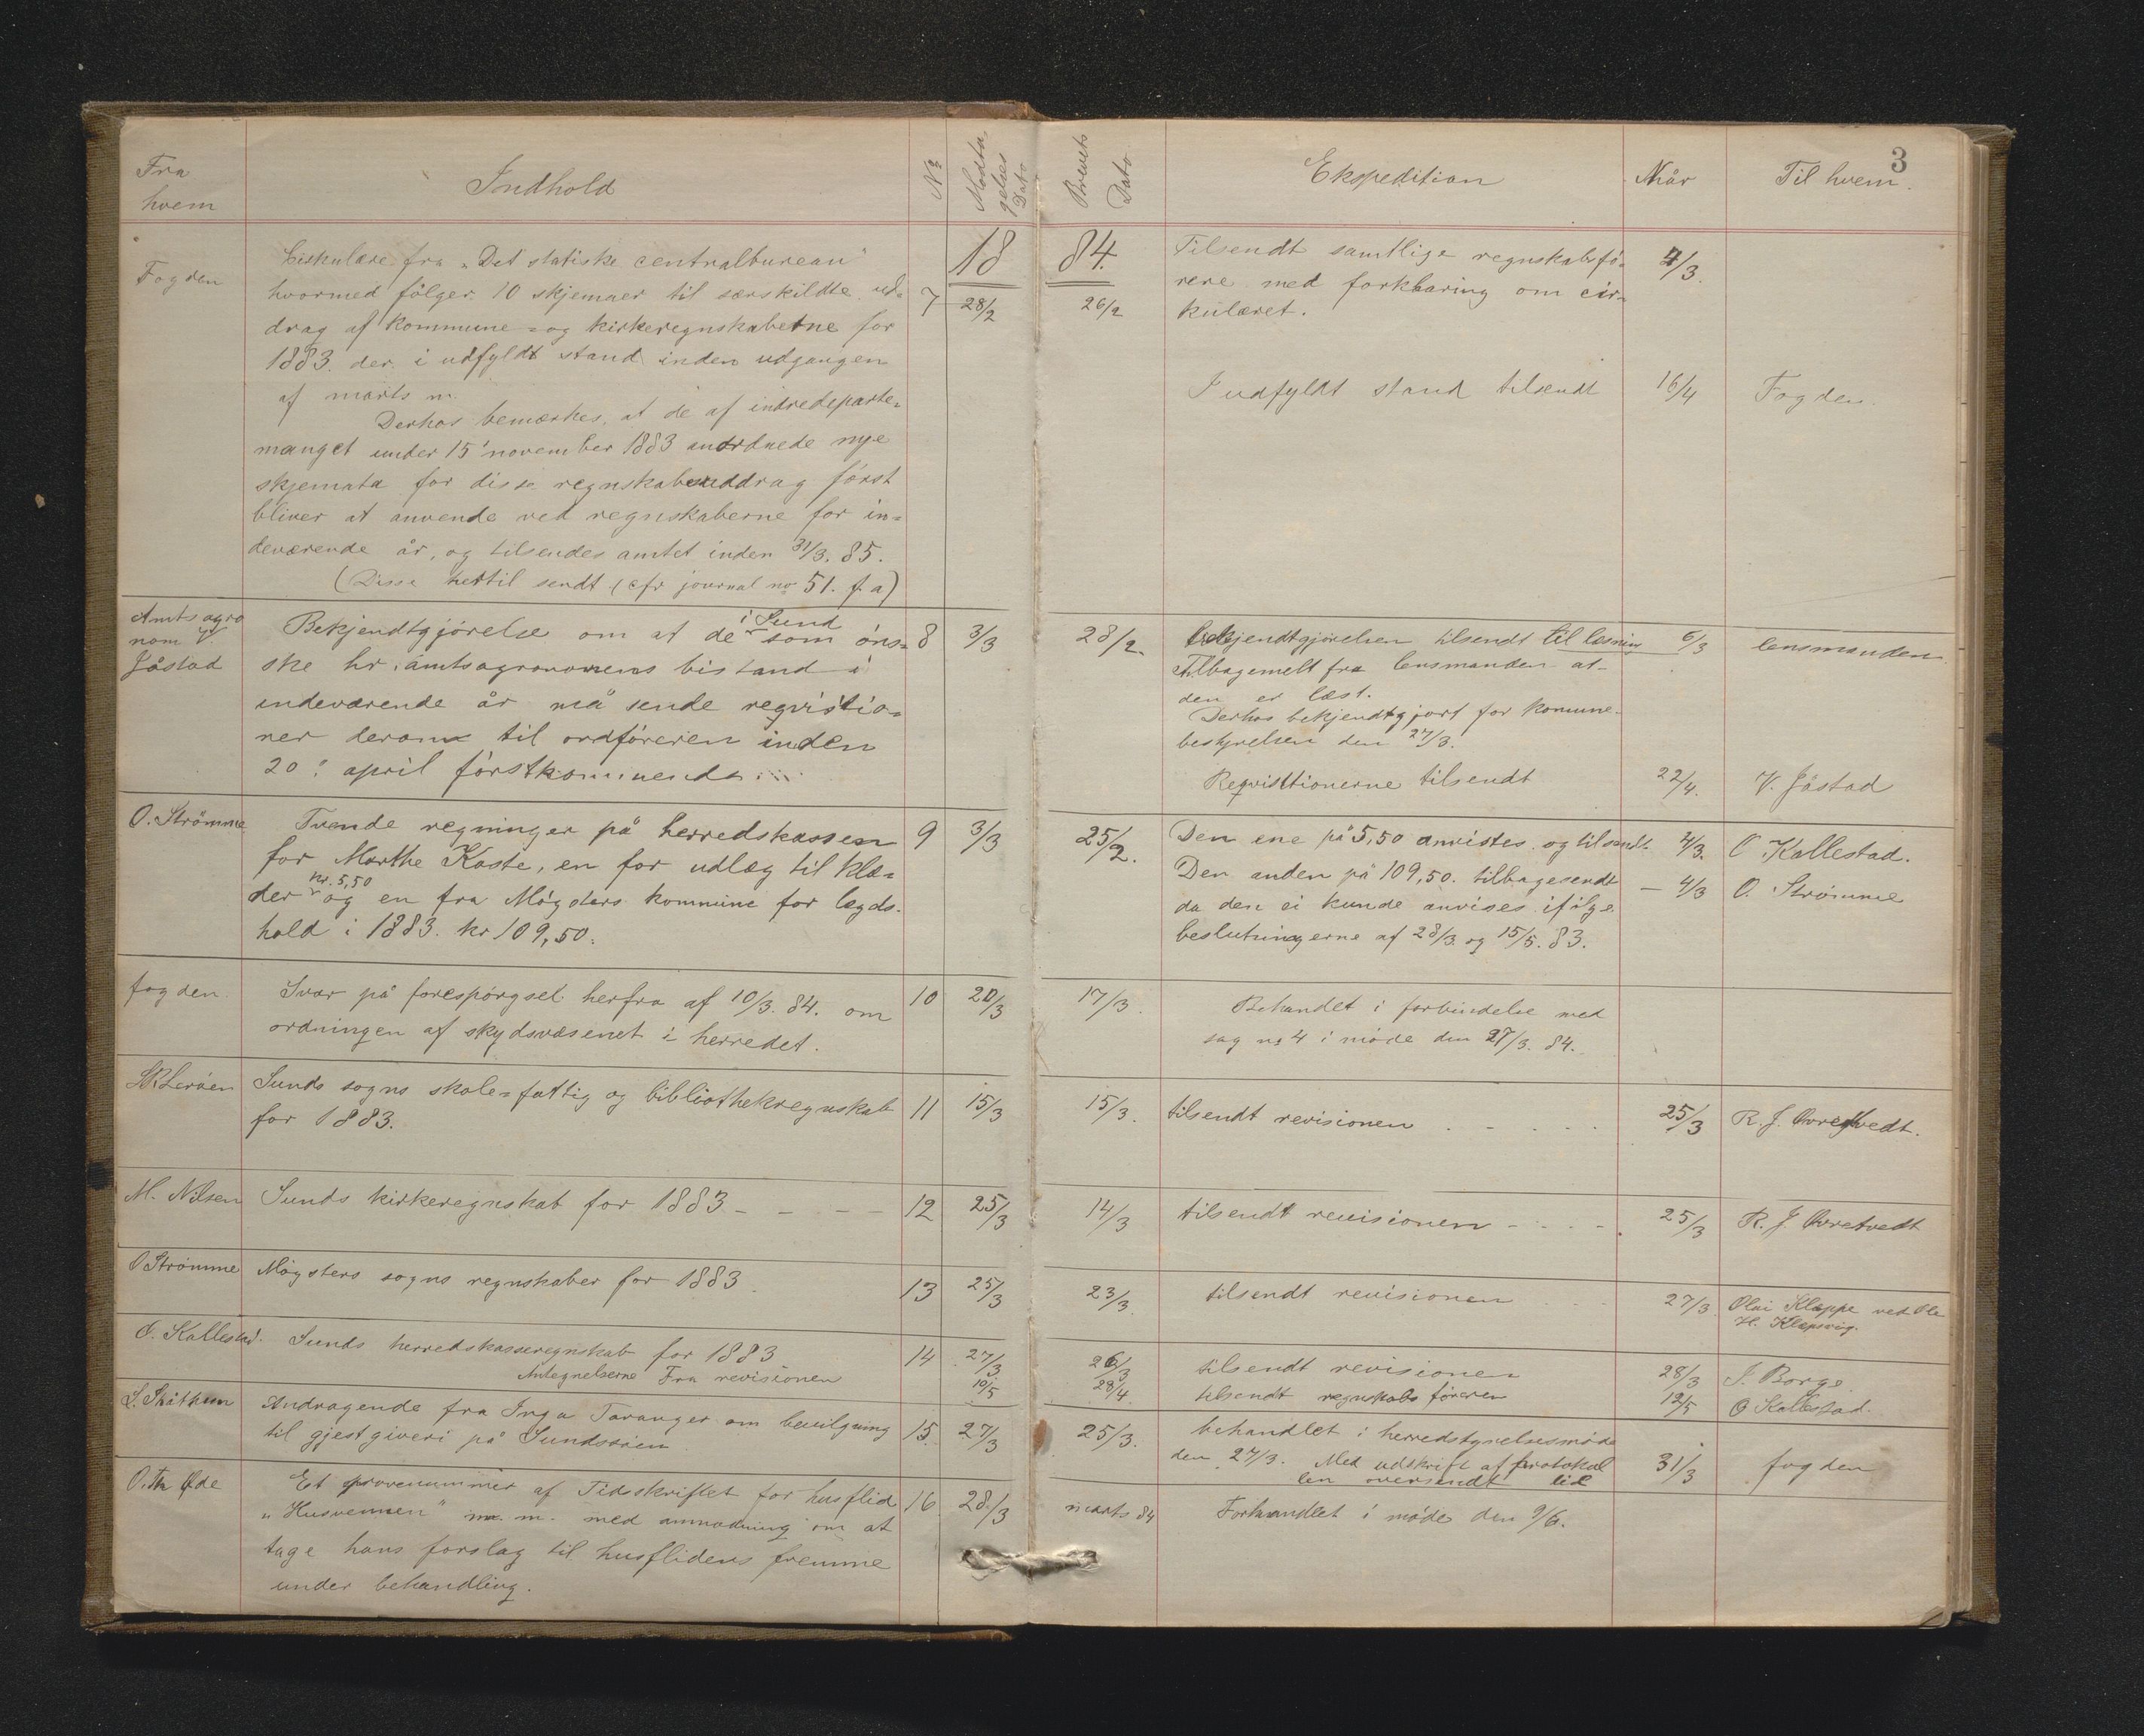 3
Fra
hvem
Indhold
No
Modta
gelses
Dato
Brevets
Dato
Ekspedition
Når
Til hvem.
18 84.
Fogden
Cirkulære fra „Det statiske centralbureau"
hvormed følger 10 skjemaer til særskildte ud=
drag af kommune= og kirkeregnskaberne for
1883. der i udfyldt stand inden udgangen
af marts m.
Derhos bemærkes, at de af indredeparte=
manget under 15' november 1883 anordnede nye
skjemata for disse regnskabsuddrag først
bliver at anvende ved regnskaberne for in=
deværende år, og tilsendes amtet inden 31/3. 85.
(Disse hertil sendt (cfr journal no 51. f. a)
7 28/2 26/2
Tilsendt samtlige regnskabsfø=
rere med forklaring om cir=
kulæret.
4/3.
I udfyldt stand tilsendt 16/4 Fogden.
Amtsagro
nom V
Jåstad
Bekjendtgjørelse om at de i Sund som øns=
ske hr. amtsagronomens bistand i
indeværende år må sende reqvisitio=
ner derom til ordføreren inden
20: april førstkommende
8 3/3 28/2.
Bekjendtgjørelsen tilsendt til læsning 6/3 lensmanden
Tilbagemelt fra lensmanden at
den er læst.
Derhos bekjendtgjort for komune-
bestyrelsen den 27/3.
Reqvisitionerne tilsendt 22/4. V. Jåstad
O. Strømme
Tvende regninger på herredskassen
for Marthe Kaste, en for udlæg til klæ=
der kr. 5,50 og en fra Møgsters kommune for lægds.
hold i 1883. kr 109,50.
9 3/3 25/2.
Den ene på 5,50 anvistes og tilsendt 4/3. O Kallestad.
Den anden på 109,50. tilbagesendt — 4/3 O. Strømme
da den ei kunde anvises ifølge
beslutningerne af 28/3. og 15/5. 83.
fogden
Svar på forespørgsel herfra af 10/3. 84. om
ordningen af skydsvæsenet i herredet.
10 20/3 17/3.
Behandlet i forbindelse med
sag no 4 i møde den 27/3. 84.
Lerøen
Sunds sogns skole= fattig og bibliothekregnskab
for 1883.
11 15/3 15/3. tilsendt revisionen 25/3 R. J. Øvretvedt.
M. Nilsen Sunds kirkeregnskab for 1883 - - - - 12 25/3 14/3 tilsendt revisionen 25/3 R. J. Øvretvedt
O Strømme Møgsters sogns regnskaber for 1883. 13 25/3 23/3. tilsendt revisionen 27/3 Olai Klæppe ved Ole
H. Klepsvig.
O. Kallestad. Sunds herredskasseregnskab for 1883 14 27/3. 26/3 tilsendt revisionen 28/3 J. Borge.
Antegnelserne Fra revisionen 10/5 28/4 tilsendt regnskabsføreren 12/5 O Kallestad.
Andragende fra Inga Taranger om bevilgning
til gjestgiveri på Sundsøien
15. 27/3 25/3.
behandlet i herredstyrelsesmøde
den 27/3. Med udskrift af protokol
len oversendt til
31/3 fogden
Et prøvenummer af Tidsskriftet for husflid
„Husvennen" m. m. med anmodning om at
tage hans forslag til husflidens fremme
under behandling.
16 28/3 marts 84 Forhandlet i møde den 9/6.